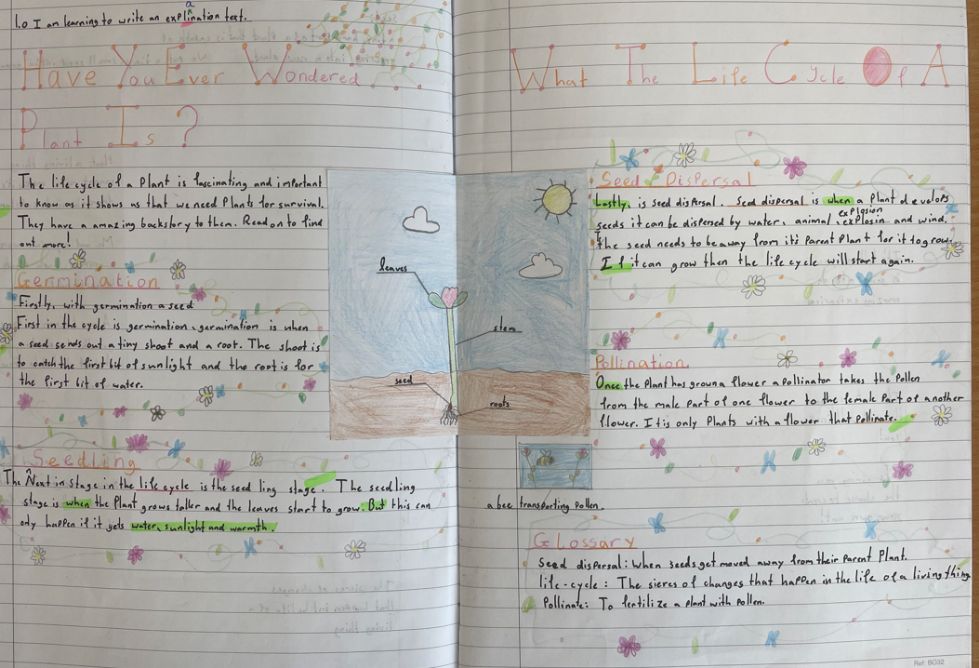 L.o I am learning to write an explination text.
a
Have You Ever Wondered What The Life Cycle Of A
Plant Is ?
The life cycle of a Plant is fascinating and important
to know as it shows us that we need Plants for survival.
They have a amazing backstory to them. Read on to find
out more!
Germination
Firstly, with germination a seed
First in the cycle is germination, germination is when
a seed sends out a tiny shoot and a root. The shoot is
to catch the first bit of sunlight and the root is for
the first bit of water.
Seedling
The Next in stage in the life cycle is the seed ling stage. The seedling
stage is when the Plant grows taller and the leaves start to grow. But this can
only happen if it gets water, sunlight and warmth.
leaves
stem
seed
roots
Seed Dispersal
Lastly, is seed dispersal. Seed dispersal is when a Plant develops
seeds it can be dispersed by water, animal, explosin and wind.
explosion
The seed needs to be away from its Parent Plant for it to grow.
If it can grow then the life cycle will start again.
Pollination
Once the Plant has grown a flower a Pollinator takes the Pollen
from the male Part of one flower to the female Part of another
flower. It is only Plants with a flower that Pollinate.
a bee transporting Pollen.
Glossary
Seed dispersal: When seeds get moved away from their Parent Plant.
life-cycle: The sieres of changes that happen in the life of a living thing
Pollinate: To fertilize a Plant with Pollen.
Ref: BO32